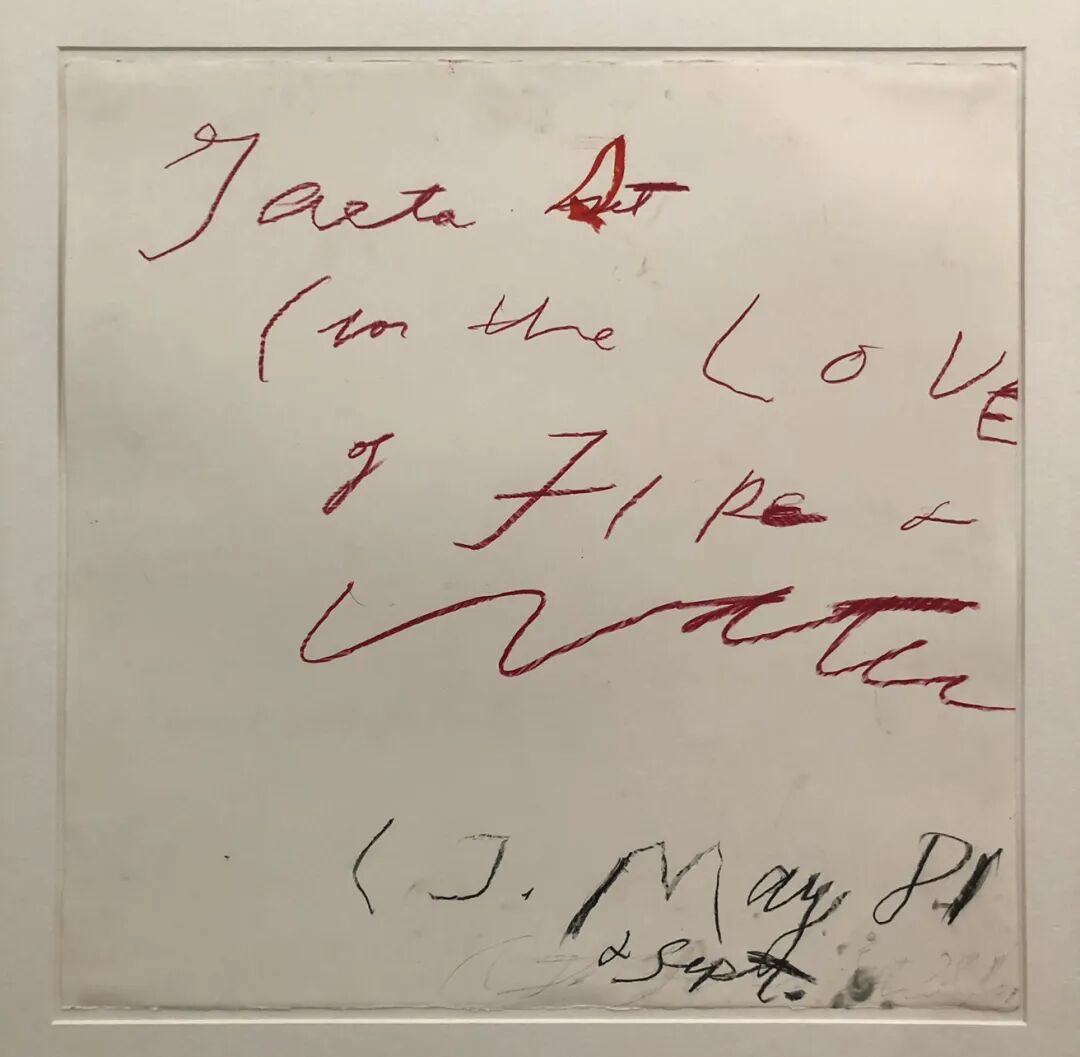 Gaeta Set
(in the LOVE
of FIRE &
Water
(J. May 81
& Sept.